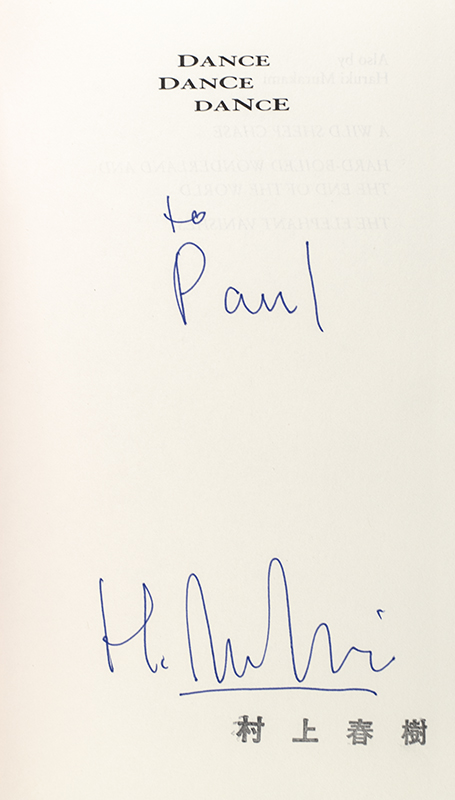 Also by
Haruki Murakami
A WILD SHEEP CHASE
HARD-BOILED WONDERLAND AND
THE END OF THE WORLD
THE ELEPHANT VANISHES
DANCE
DANCE
DANCE
to
Paul
H. Murakami
村上春樹